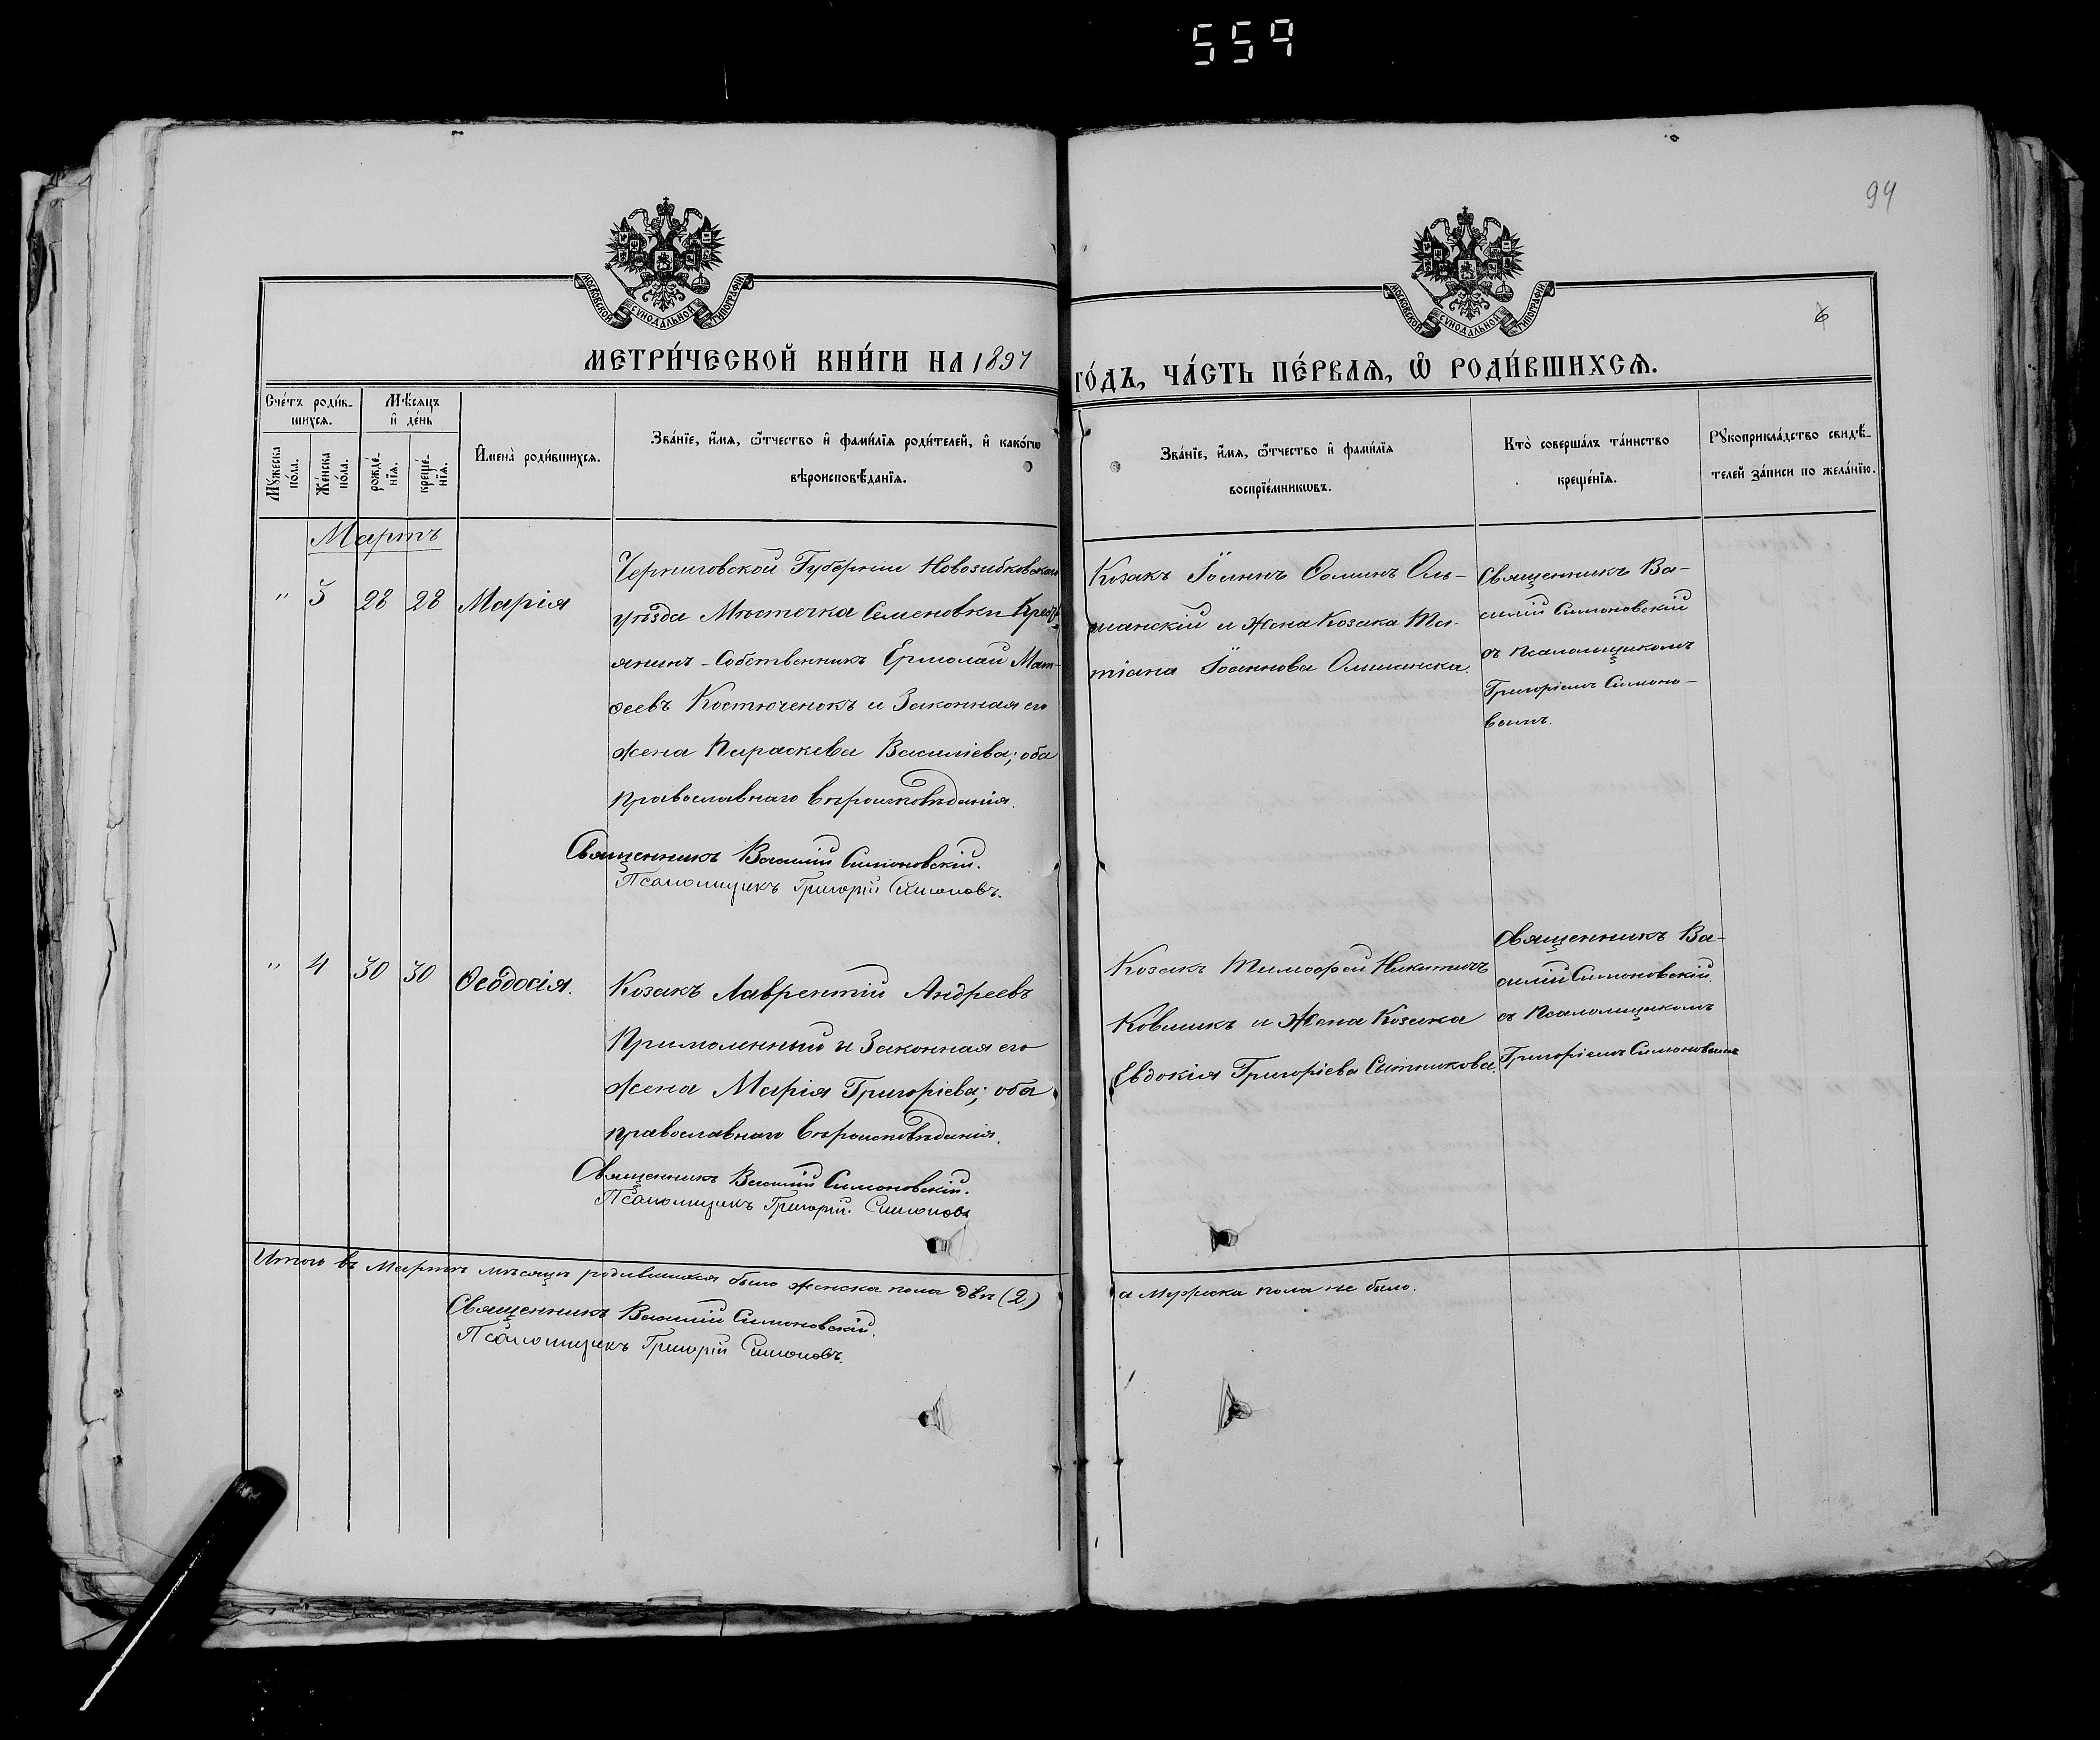 559
94
6
МОСКОВСКОЙ СУНОДАЛЬНОЙ ТИПОГРАФІИ
МОСКОВСКОЙ СУНОДАЛЬНОЙ ТИПОГРАФІИ
МЕТРИ́ЧЕСКОЙ КНИ́ГИ НА 1897
ГО́ДЪ, ЧА́СТЬ ПЕ́РВАѦ, Ѡ҆ РОДИ́ВШИХСѦ.
Сче́тъ роди́в-
шихсѧ.
Мѣ́сѧцъ
и҆ де́нь
Мꙋ́жеска
по́ла.
Же́нска
по́ла.
рожде́-
нїѧ.
креще́-
нїѧ.
И҆мена̀ роди́вшихсѧ.
Зва́нїе, и҆́мѧ, ѻ҆́тчество и҆ фами́лїѧ роди́телей, и҆ како́гѡ
вѣроисповѣ́данїѧ.
Зва́нїе, и҆́мѧ, ѻ҆́тчество и҆ фами́лїѧ
воспрїе́мникѡвъ.
Кто̀ соверша́лъ та́инство
креще́нїѧ.
Рꙋкоприкла́дство свидѣ́-
телей за́писи по жела́нїю.
Мартъ
" 3 28 28 Марія
Черниговской Губерніи Новозыбковскаго
уѣзда Мѣстечка Семеновки Кресть
янинъ-Собственникъ Ермолай Мат-
ѳеевъ Костюченокъ и Законная его
жена Параскева Василіева; оба
православнаго вѣроисповѣданія.
Священникъ Василій Симоновскій.
Псаломщикъ Григорій Симоновъ.
Козакъ Іоаннъ Ѳоминъ Оль-
шанскій и жена Козака Та-
тіана Іоаннова Ольшанска.
Священникъ Ва-
силій Симоновскій
съ псаломщикомъ
Григоріемъ Симоно-
вымъ.
" 4 30 30 Ѳеодосія.
Козакъ Лаврентій Андреевъ
Примоленный и Законная его
жена Марія Григоріева; оба
православнаго вѣроисповѣданія.
Священникъ Василій Симоновскій.
Псаломщикъ Григорій Симоновъ
Козакъ Тимофей Никитичъ
Ковшикъ и Жена Козака
Евдокія Григоріева Сытникова.
Священникъ Ва-
силій Симоновскій.
съ Псаломщикомъ
Григоріемъ Симоновымъ
Итого въ Мартѣ мѣсяцѣ родившихся было женска пола двѣ (2)
а Мужеска пола не было.
Священникъ Василій Симоновскій.
Псаломщикъ Григорій Симоновъ.